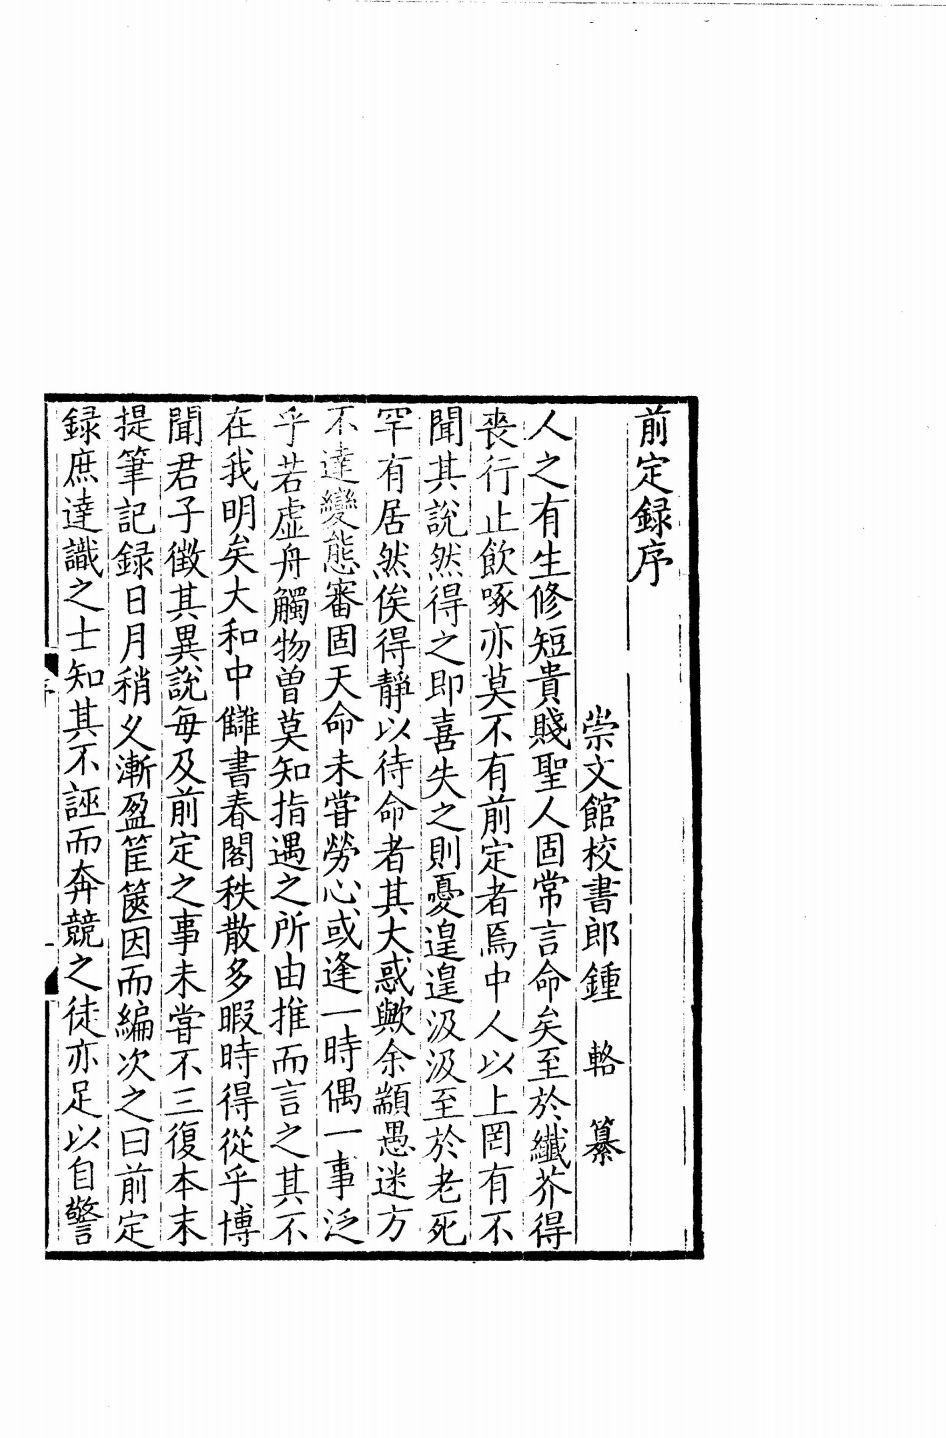 前定録序
崇文館校書郎鍾 輅 纂
人之有生修短貴賤聖人固常言命矣至於纖芥得
喪行止飲啄亦莫不有前定者焉中人以上罔有不
聞其說然得之即喜失之則憂遑遑汲汲至於老死
罕有居然俟得靜以待命者其大惑歟余顓愚迷方
不達變態審固天命未嘗勞心或逢一時偶一事泛
乎若虛舟觸物曾莫知指遇之所由推而言之其不
在我明矣大和中讎書春閣秩散多暇時得從乎博
聞君子徵其異說每及前定之事未嘗不三復本末
提筆記録日月稍乆漸盈筐篋因而編次之曰前定
録庶達識之士知其不誣而奔競之徒亦足以自警
序